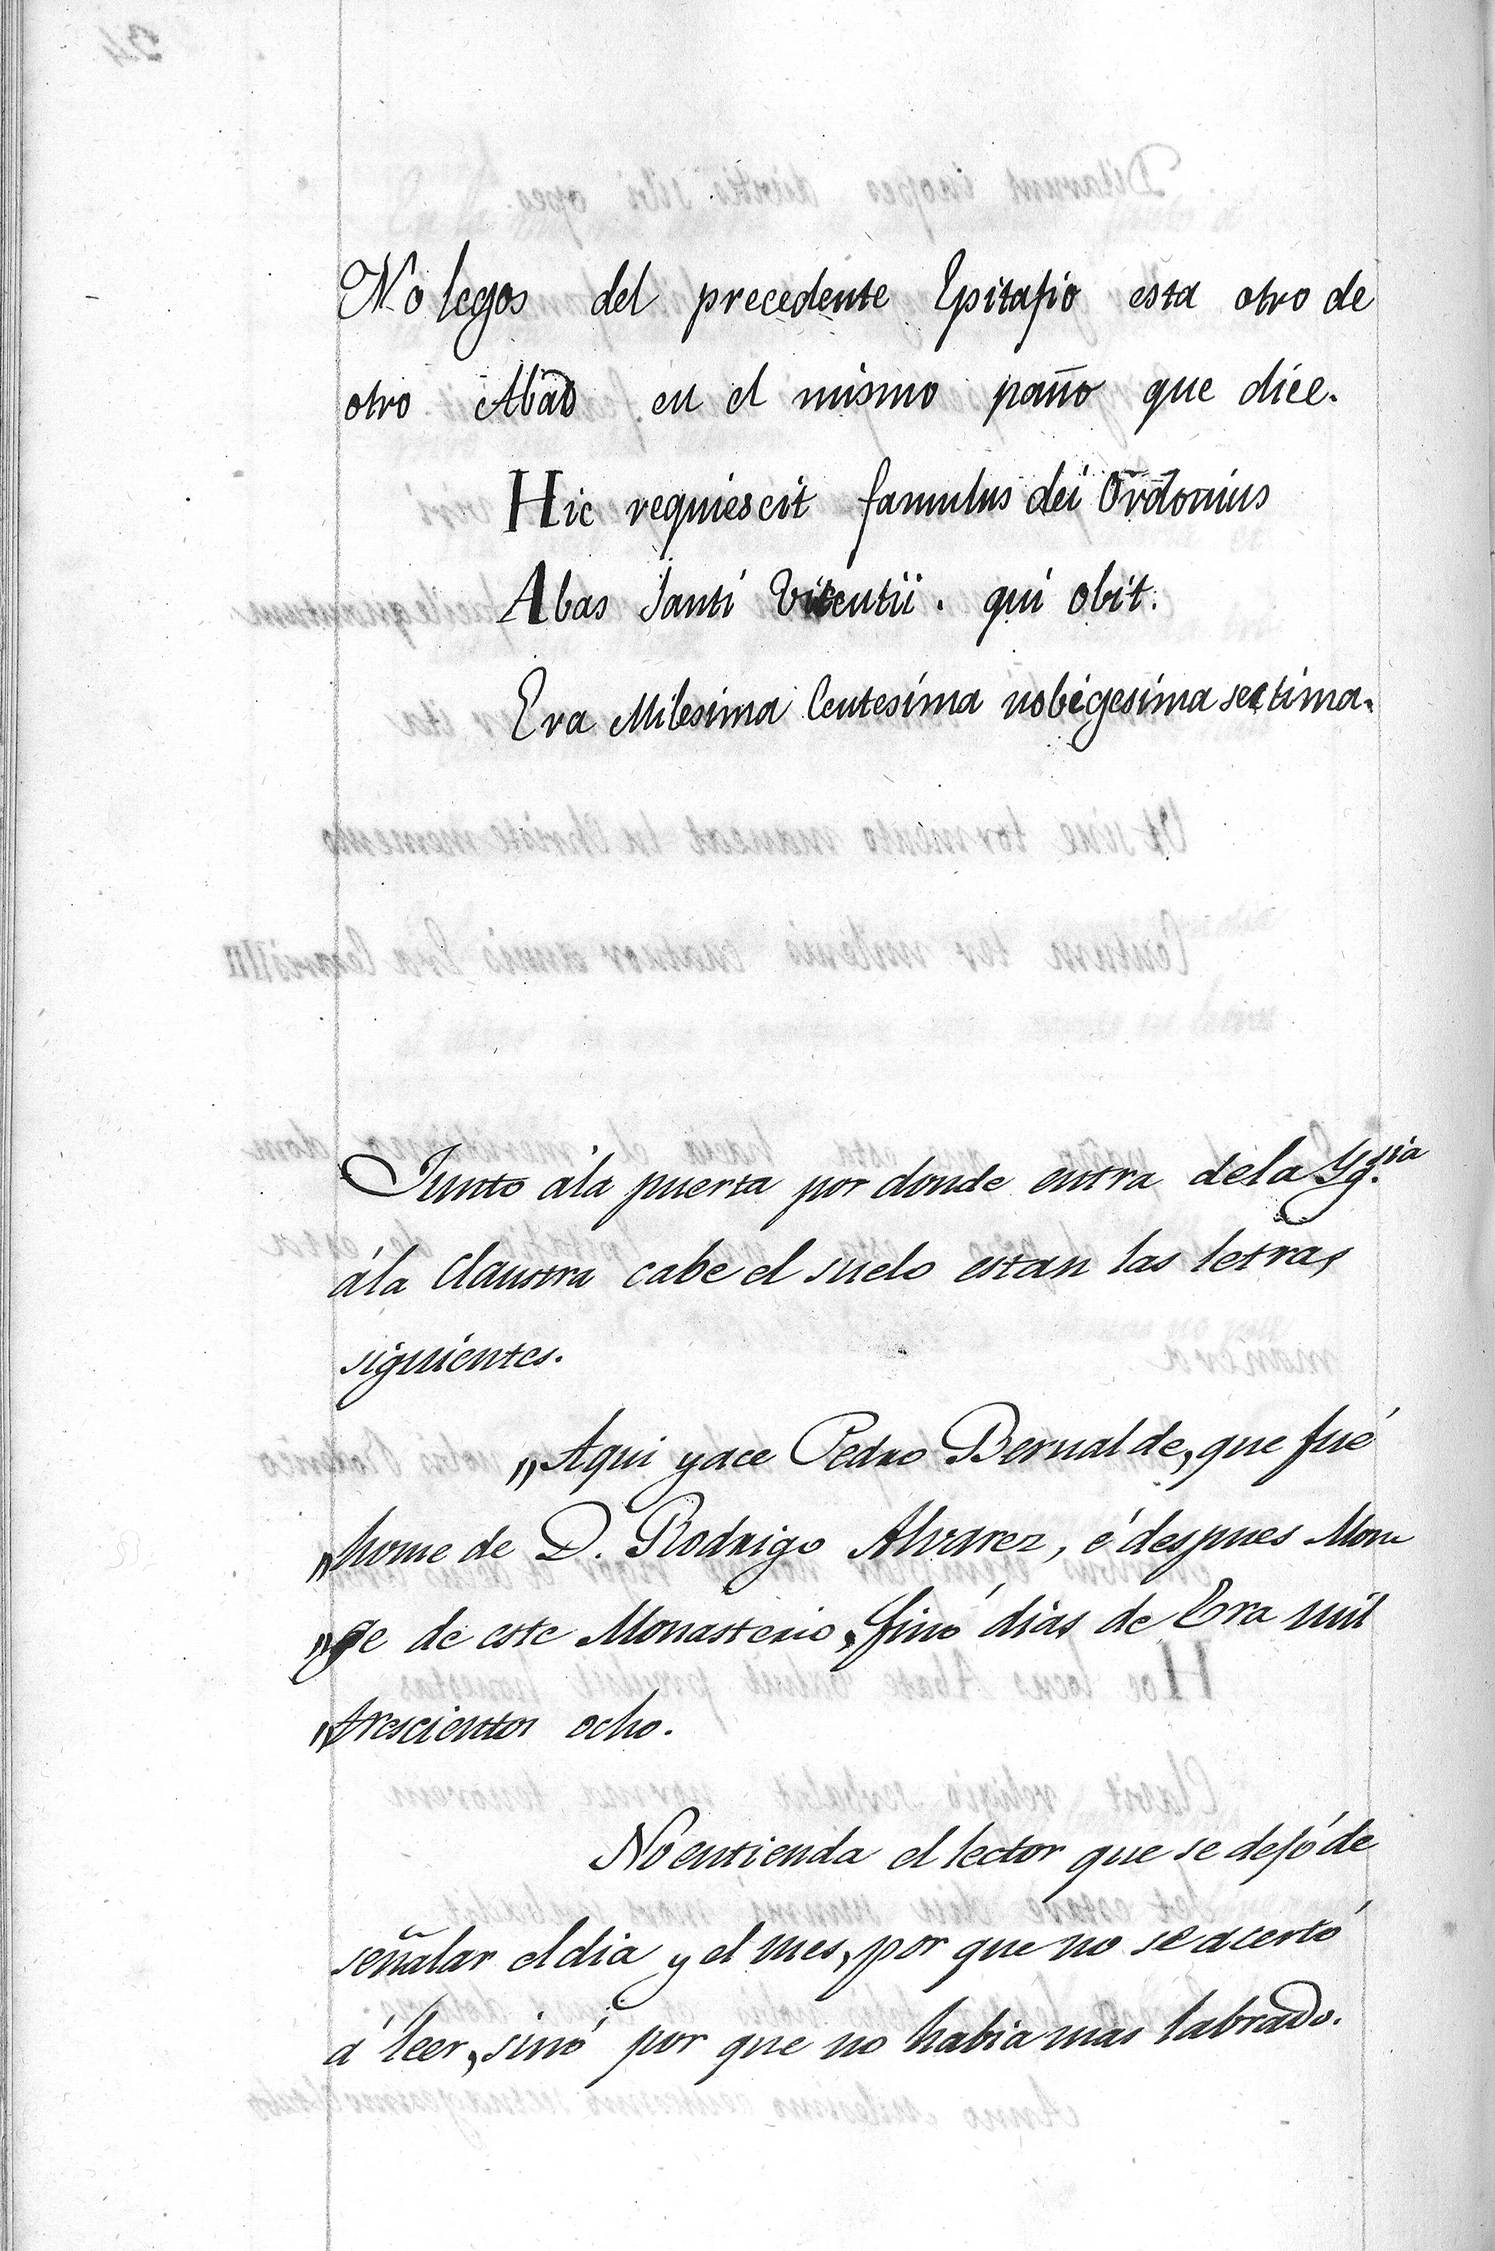 No legos del precedente Epitafio esta otro de
otro Abad en el mismo paño que dice.
Hic requiescit famulus dei Ordonius
Abas Santi Vicentii. qui obit.
Era Milesima Centesima nobegesima sectima.
Junto ála puerta por donde entra dela Yg.sia
ála Claustra cabe el suelo estan las letras
siguientes.
„Aqui yace Pedro Bernalde, que fué
„home de D. Rodrigo Alvarez, é despues Mon
„ge de este Monasterio, finó dias de Era mil
„trescientos ocho.
No entienda el lector que se dejó de
señalar el dia y el mes, por que no se acertó
á leer, sinó por que no habia mas labrado.